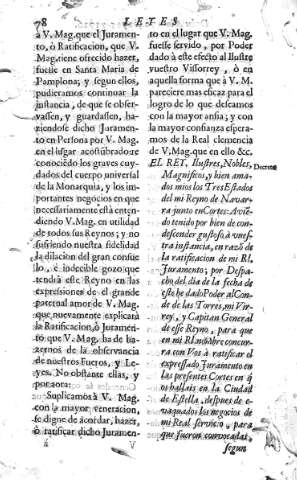 78 LEYES
à V. Mag. que el Juramen-
to, ò Ratificacion, que V.
Mag. tiene ofrecido hazer,
fuesse en Santa Maria de
Pamplona; y segun ellos,
pudieramos continuar la
instancia, de que se obser-
vassen, y guardassen, ha-
ziendose dicho Juramen-
to en Persona por V. Mag.
en el lugar acostūbrado: re
conociēdo los graves cuy-
dados del cuerpo universal
de la Monarquia, y los im-
portantes negocios en que
necessariamente està enten-
diendo V. Mag. en utilidad
de todos sus Reynos; y no
sufriendo nuestra fidelidad
la dilacion del gran consue
lo, è indecible gozo que
tendrà este Reyno en las
expressiones de el grande
paternal amor de V. Mag.
que nuevamente explicarà
la Ratificacion, ò Juramen-
to que V. Mag. ha de ha-
zernos de la observancia
de nuestros Fueros, y Le-
yes. No obstante ellas, y
por aora:
Suplicamos à V. Mag.
con la mayor veneracion,
se digne de acordar, hazer,
ò ratificar dicho Juramen-
to en el lugar que V. Mag.
fuesse servido, por Poder
dado à este efecto al Ilustre
vuestro Visorrey, ò en
aquella forma que à V. M.
pareciere mas eficaz para el
logro de lo que deseamos
con la mayor ansia; y con
la mayor confianza espera-
mos de la Real clemencia
de V. Mag. que en ello &c.
EL REY, Ilustres, Nobles,
Decreto
Magnificos, y bien ama-
dos mios los Tres Estados
del mi Reyno de Navar-
ra junto en Cortes: Avie-
do tenido por bien de con-
descender gustoso à vues-
tra instancia, en razō de
la ratificacion de mi Rl.
Juramento; por Despa-
cho del dia de la fecha de
este he dado Poder al Con-
de de las Torres, mi Vir-
rey, y Capitan General
de esse Reyno, para que
en mi Rl. nombre concur-
ra con Vos à ratificar el
expressado Juramento en
las presentes Cortes en q̄
os hallais en la Ciudad
de Estella, despues de e-
vaquados los negocios de
mi Real servicio, para
que fueron convocadas,
segun